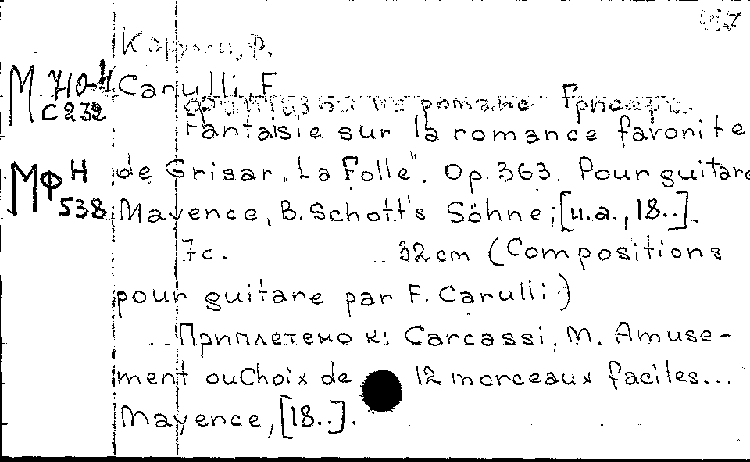 Карулли, Ф.
М 710-4 Carulli, F.
С 232
Фантазия на романс Гризара.
Fantaisie sur la romance favorite
de Grisar „La Folle". Op. 363. Pour guitare
МФ Н
538
Mayence, B. Schott's Söhne; [u.a., 18..].
7с. 32cm (Compositions
pour guitare par F. Carulli)
Приплетено к: Carcassi, M. Amuse-
ment ou Choix de 12 morceaux faciles...
Mayence, [18..].